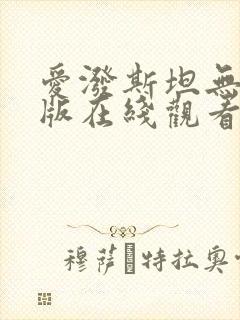 愛潑斯坦無
版在綫觀看
穆萨�特拉奥